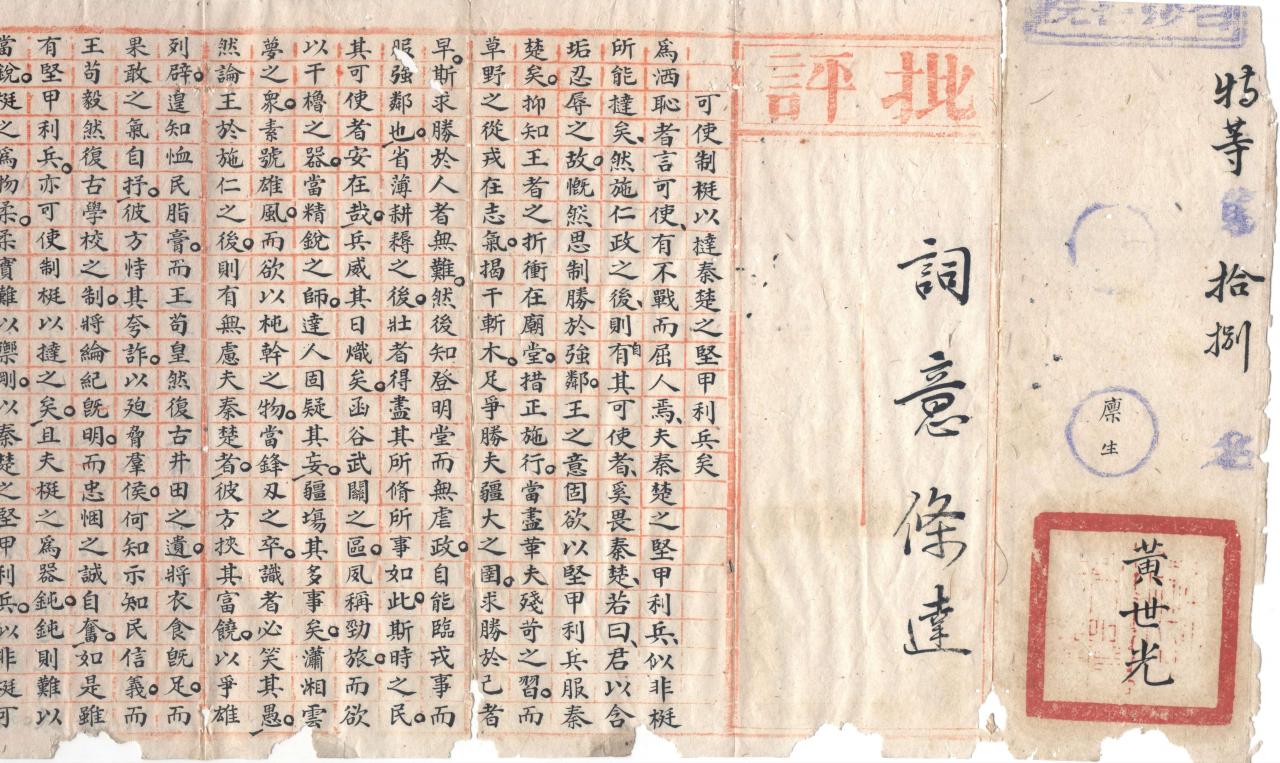 特等第拾捌名
廩生
黃世光
批評
詞意條達
可使制梃以撻秦楚之堅甲利兵矣
為洒恥者言可使、有不戰而屈人焉、夫秦楚之堅甲利兵、似非梃
所能撻矣、然施仁政之後、則自有其可使者、奚畏秦楚、若曰、君以含
垢忍辱之故。慨然思制勝於強鄰。王之意固欲以堅甲利兵服秦
楚矣。抑知王者之折衝在廟堂。措正施行。當盡革夫殘苛之習。而
草野之從戎在志氣。揭干斬木。足爭勝夫疆大之圉。求勝於己者
早。斯求勝於人者無難。然後知登明堂而無虐政。自能臨戎事而
服強鄰也。省薄耕耨之後。壯者得盡其所脩所事如此。斯時之民。
其可使者安在哉。兵威其日熾矣。函谷武關之區。夙稱勁旅。而欲
以干櫓之器。當精銳之師。達人固疑其妄。疆場其多事矣。瀟湘雲
夢之衆。素號雄風。而欲以杶幹之物。當鋒刄之卒。識者必笑其愚。
然論王於施仁之後。則有無慮夫秦楚者。彼方挾其富饒。以爭雄
列辟。遑知恤民脂膏。而王苟皇然復古井田之遺。將衣食旣足。而
果敢之氣自抒。彼方恃其夸詐。以廹脅羣侯。何知示知民信義。而
王苟毅然復古學校之制。將綸紀旣明。而忠悃之誠自奮。如是雖
有堅甲利兵。亦可使制梃以撻之矣。且夫梃之為器鈍。鈍則難以
當銳。梃之為物柔。柔實難以禦剛。以秦楚之堅甲利兵。以非梃可